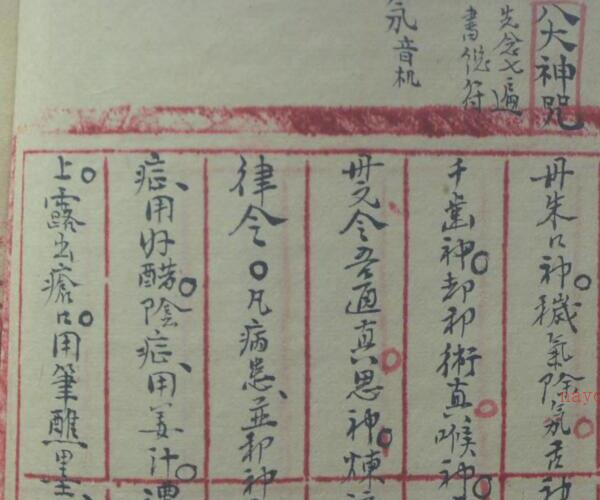 八大神咒
先念七遍
書後符
氛音机
丹朱口神。穢氣除氛。舌神
千齒神。却邪術真。喉神。
毌元令吾通真。思神。煉
律令。凡病患、並邪神
症、用好醋。陰症、用姜汁。
上。露出瘡口。用筆醮墨